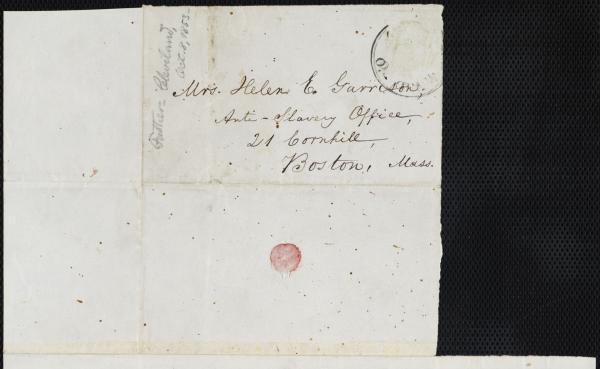 Father - Cleveland,
Oct. 8, 1853.
Mrs. Helen E. Garrison,
Anti-Slavery Office,
21 Cornhill,
Boston, Mass.